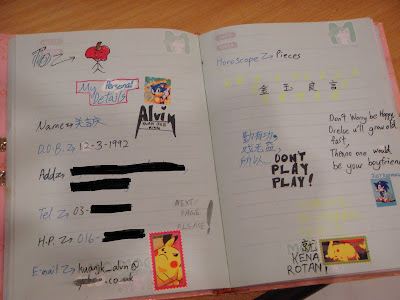 To
My Personal
Details
Name
D.O.B. 12-3-1992
Add
Tel 03-
H.P. 016-
Email kuanjk_alvin@
.co.uk
Alvin
NEXT
PAGE
PLEASE!
Horoscope Pieces
金玉良言
勤有功
戏无益
所以 DON'T
PLAY
PLAY!
Don't Worry be Happy
Orelse u'll grow old
fast,
Then no one would
be your boyfriend
就
KENA
ROTAN!